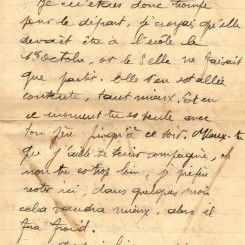 Je m'étais donc trompé
pour le départ, je croyais qu'elle
devait être à l'école le
1er Octobre, or le 5 elle ne faisait
que partir. Elle s'en est allée
contente, tant mieux. Et en
ce moment tu es seule avec
ton père jusqu'à ce soir. Veux-tu
que j'aille te tenir compagnie,
non tu es trop loin, je préfère
rester ici, dans quelques mois
cela vaudra mieux, alors il
fera froid.